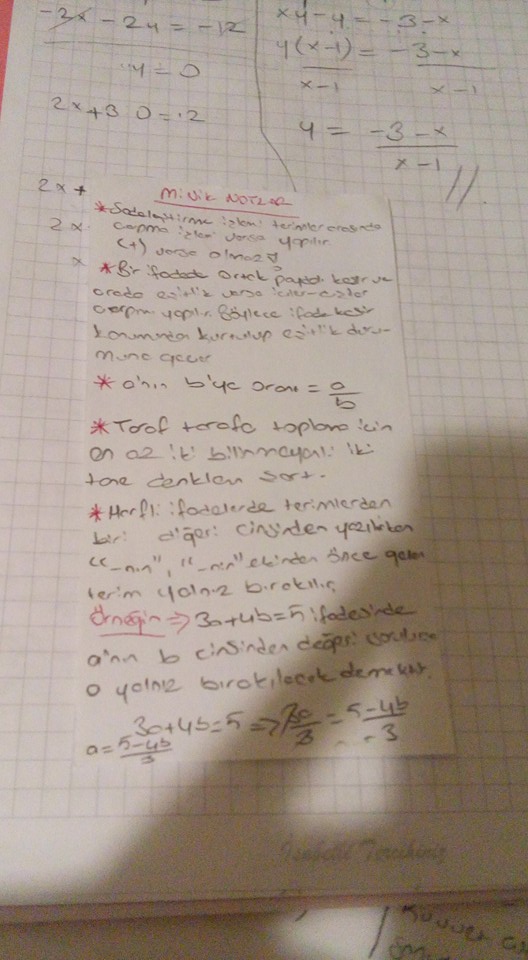 -2x - 2y = -12
y = 0
2x+3.0=12
2x+
2x
x
xy-y = -3-x
y(x-1) = -3-x
x-1 x-1
y = -3-x
x-1 //
MİNİK NOTLAR
* Sadeleştirme işlemi terimler arasında
çarpma işlemi varsa yapılır.
(+) varsa olmaz
* Bir ifadede ortak payda kesir ve
orada eşitlik varsa içler-dışlar
çarpımı yapılır. Böylece ifade kesir
konumundan kurtulup eşitlik duru-
muna geçer
* a'nın b'ye oranı = a/b
* Taraf tarafa toplama için
en az iki bilinmeyenli iki
tane denklem şart.
* Harfli ifadelerde terimlerden
biri diğeri cinsinden yazılırken
"-nın", "-nin" ekinden önce gelen
terim yalnız bırakılır
Örneğin => 3a+4b=5 ifadesinde
a'nın b cinsinden değeri sorulursa
a yalnız bırakılacak demektir.
3a+4b=5 => 3a/3 = 5-4b/3
a = 5-4b/3
İsabetli Tercihiniz
Kuvvet